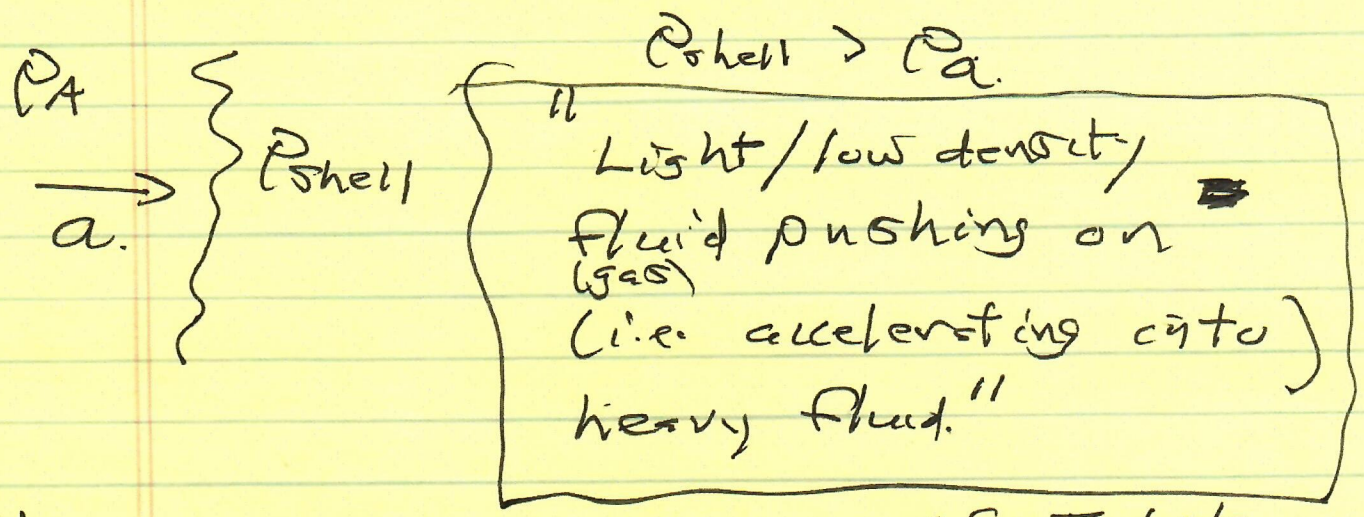 ρshell > ρa.
ρA
ρshell
a.
"Light/low density
fluid pushing on
(gas)
(i.e. accelerating into)
heavy fluid."